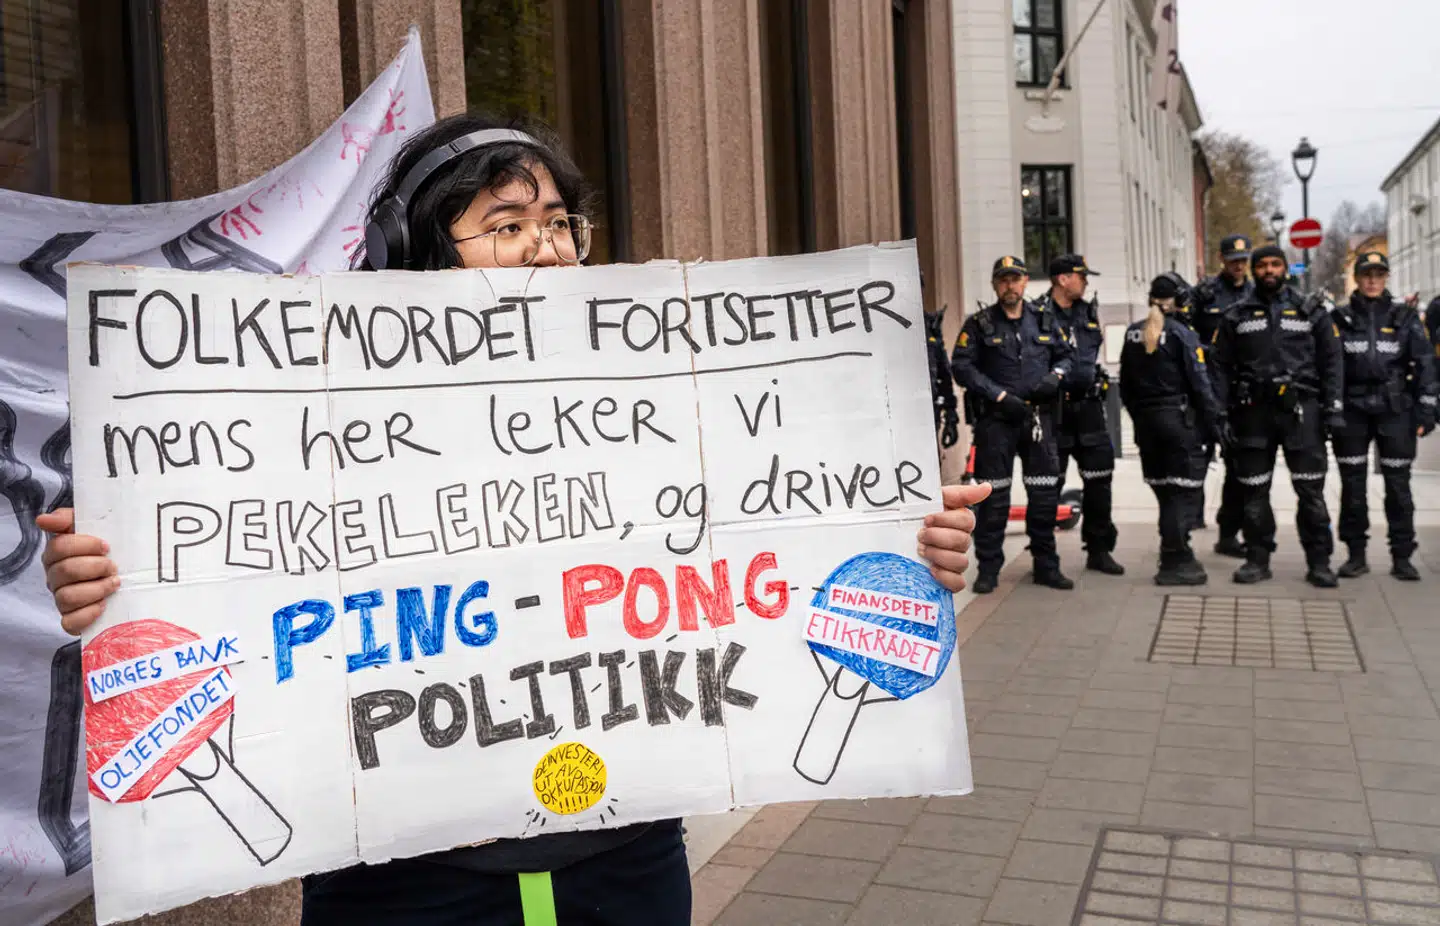 FOLKEMORDET FORTSETTER
mens her leker vi
PEKELEKEN, og driver
PING-PONG
POLITIKK
NORGES BANK
OLJEFONDET
FINANSDEPT.
ETIKKRÅDET
DEINVESTERI
UT AV
OKKUPASJON
!!!!!